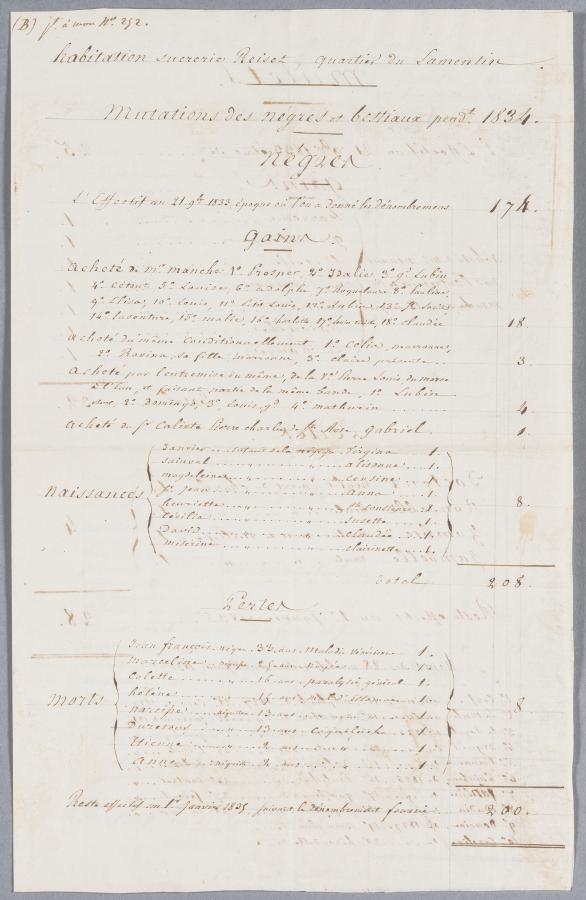 (B) jt à mon No 252.
habitation sucrerie Reiset, quartier du Lamentin.
Mutations des nègres et bestiaux pendt 1834.
Nègres
L'Effectif au 21 9bre 1833, époque où l'on a donné les dénombremens 174.
Gains.
acheté de Mr manche 1º Prosper, 2º Idalie, 3º gd Lubin
4º 5º Louise, 6º adolphe 7º Roquelaure 8º Pauline,
9º Eliza, 10º Louis, 11º ptit Louis, 12º Aubin 13º
14º laventure, 15º malie, 16º 17º 18º claudée 18.
acheté du même Conditionnellement, 1º Célie, marronne,
2º Rosina, sa fille, marronne, 3º claire présente 3.
acheté par l'entremise du même, de la Ve Pierre Louis, du morne
et faisant partie de la même bande, 1º Lubin
2º Dominique, 3º Louis, gd 4º mathurin 4.
acheté du Sr Calixte Pierre charles de gabriel 1.
Naissances
Janvier enfant de la négresse Virginie 1.
Sainval " alisonne 1.
magdeleine " censine 1.
St Jean " anna 1.
henriette " 1.
Cécilia " Susette 1.
David " claudée 1.
misérine " clairinette 1.
8.
total 208.
Pertes
Morts
Jean françois nègre 33 ans maladie vénérienne 1.
marceline négresse 1.
Colette " 16 ans paralysie général 1.
hélène " 16 ans 1.
narcisse négrillon 13 ans 1.
" 13 ans Coqueluche 1.
Etienne " 2 1.
Anne négritte 2 1.
8
Reste effectif au 1er Janvier 1835, suivant le dénombrement fourni. 200.